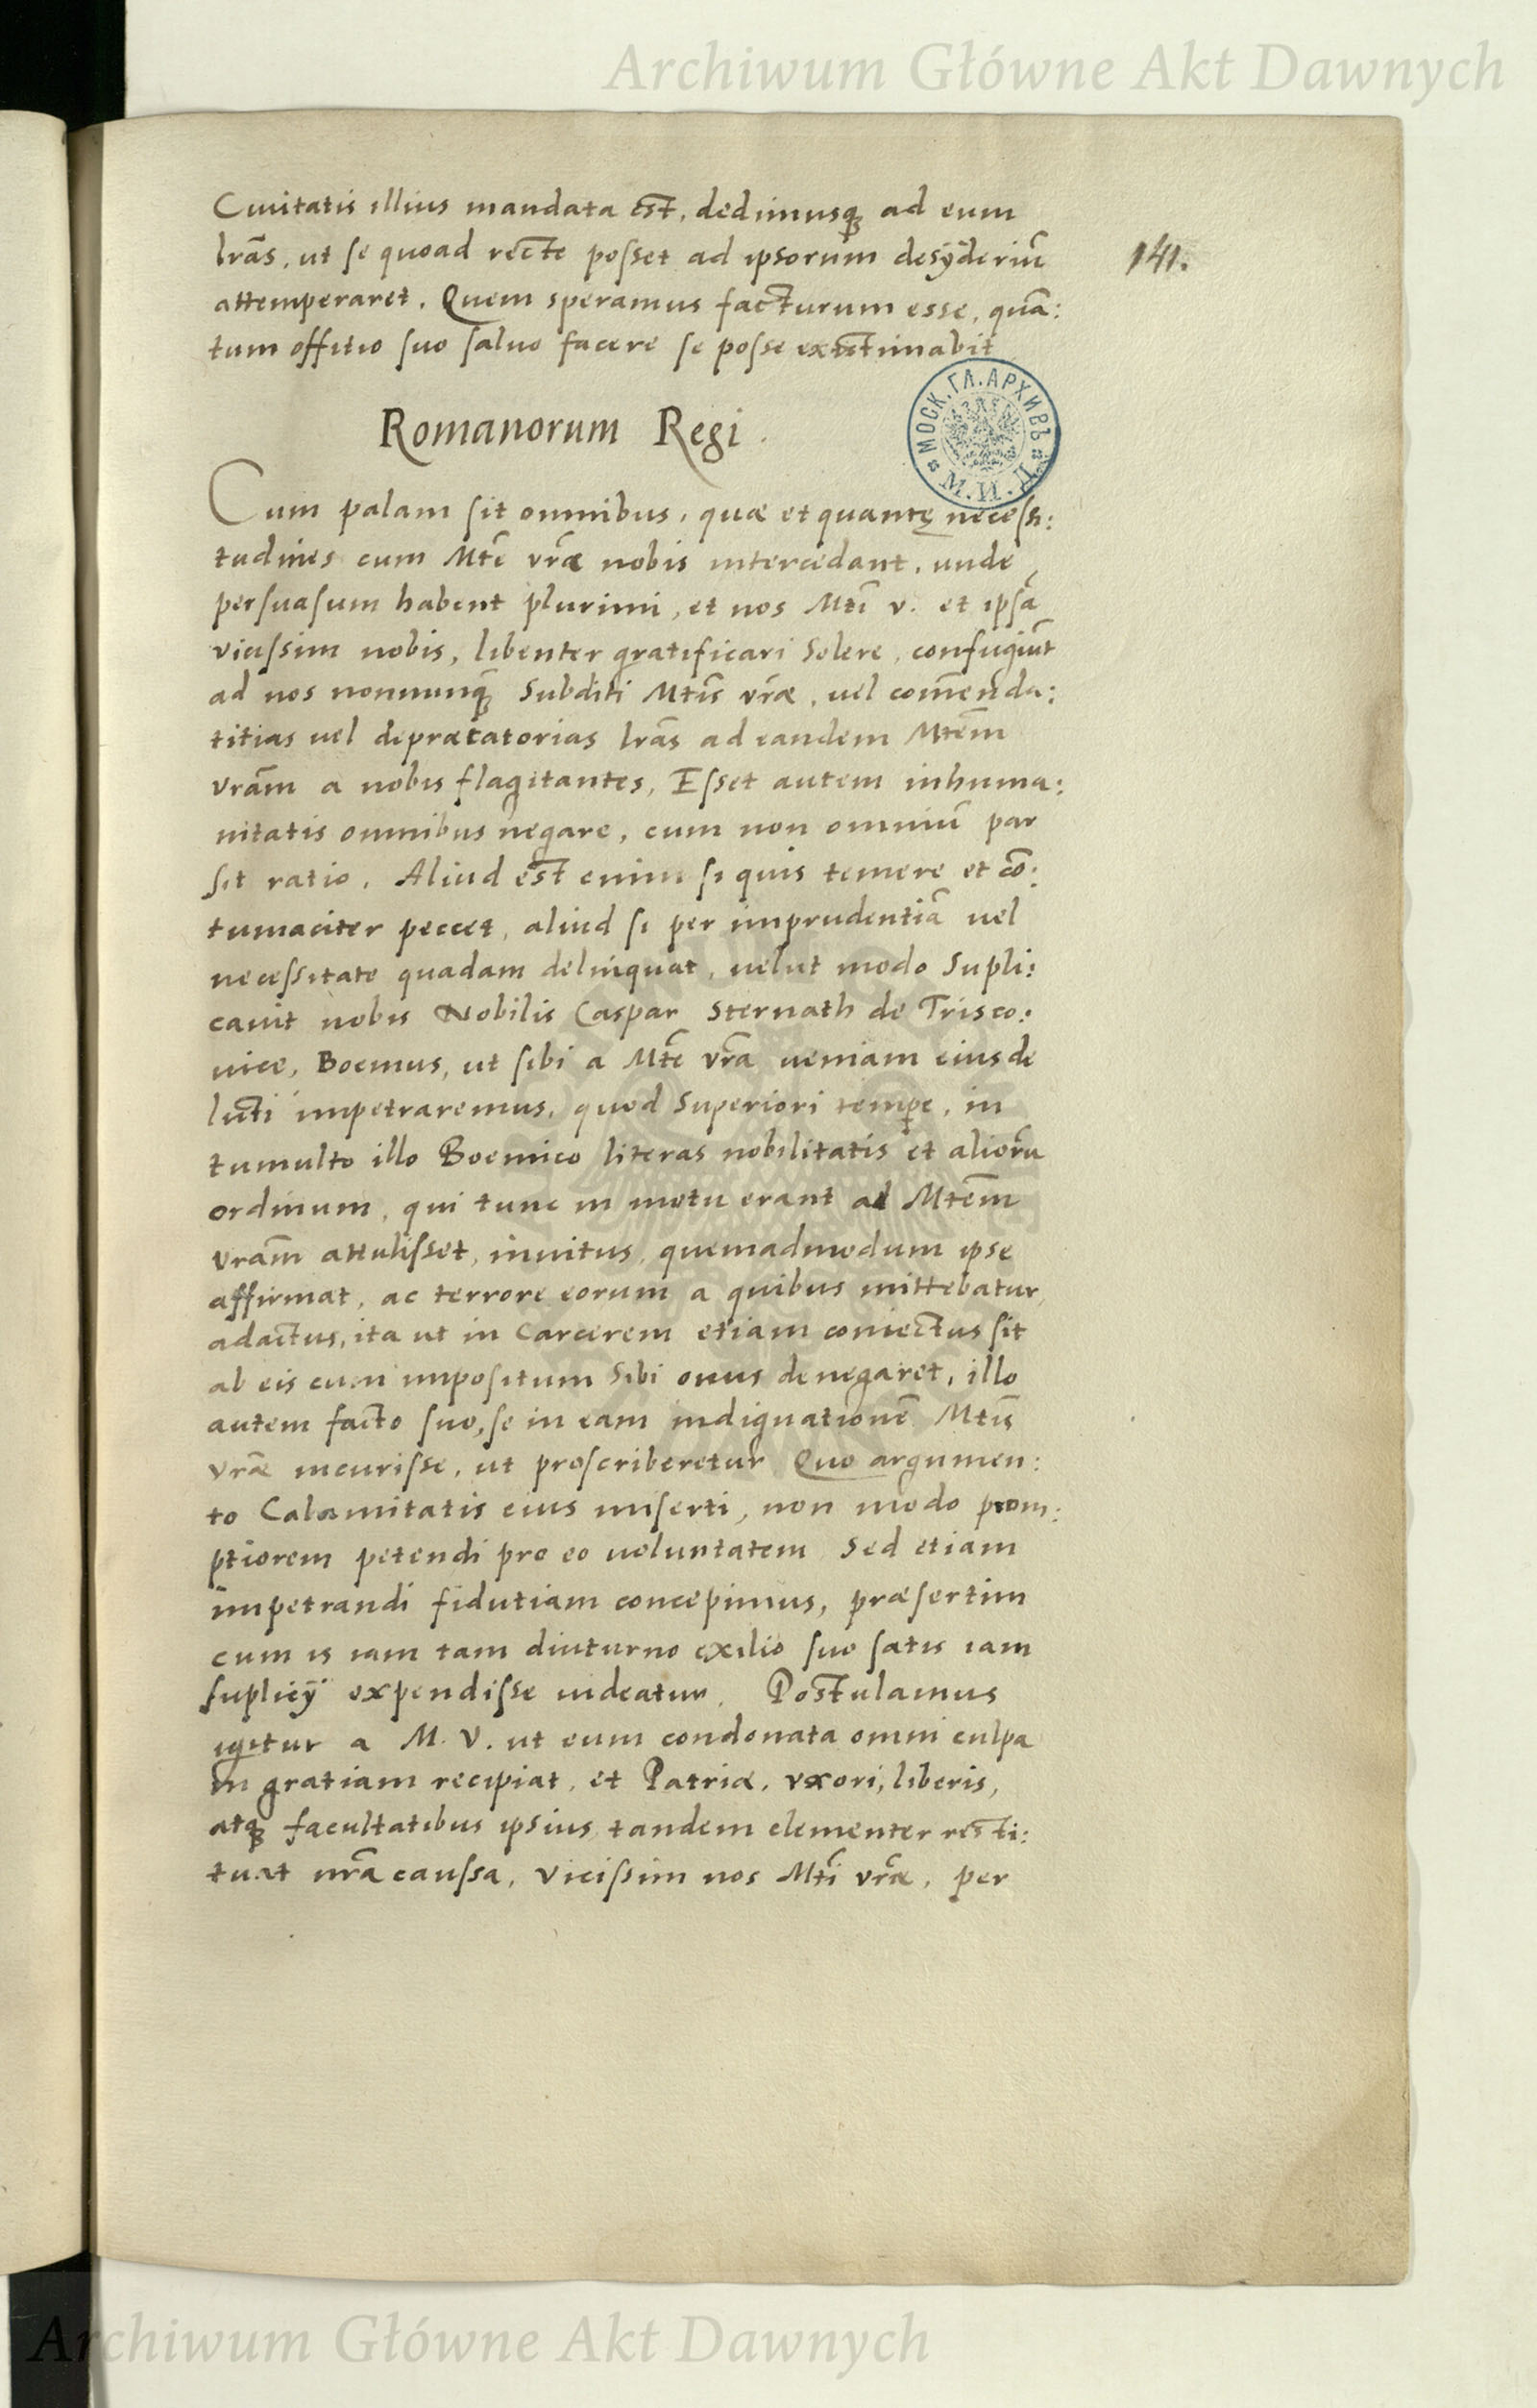 Archiwum Główne Akt Dawnych
Ciuitatis illius mandata est, dedimusq; ad eum
lrãs, ut se quoad recte posset ad ipsorum desÿderiũ
141.
attemperaret. Quem speramus facturum esse, quã:
tum offitio suo saluo facere se posse existimabit
МОСК. ГЛ. АРХИВЪ
М. И. Д.
Romanorum Regi.
Cum palam sit omnibus, quæ et quantę necessi:
tudines cum Mte͂ vrã nobis intercedant, unde
persuasum habent plurimi, et nos Mti͂ v. et ipsã
vicissim nobis, libenter gratificari Solere, confugiũt
ad nos nonnunq̃ Subditi Mtis͂ vræ͂, uel com̃enda:
titias uel depræcatorias lrãs ad eandem Mtem͂
vrãm a nobis flagitantes, Esset autem inhuma:
nitatis omnibus negare, cum non omniũ par
sit ratio. Aliud est enim si quis temere et cõ:
tumaciter peccet, aliud si per imprudentiã uel
necessitate quadam delinquat, uelut modo Supli:
cauit nobis Nobilis Caspar Sternath de Trisco:
uice, Boemus, ut sibi a Mte͂ vrã ueniam eius de
licti impetraremus, quod Superiori tempe, in
tumulto illo Boemico literas nobilitatis et aliorũ
ordinum, qui tunc in motu erant ad Mtem͂
vrãm attulisset, inuitus, quemadmodum ipse
affirmat, ac terrore eorum a quibus mittebatur,
adactus, ita ut in Carcerem etiam coniectus sit
ab eis cum impositum Sibi onus denegaret, illo
autem facto suo, se in eam indignationẽ Mtis͂
vræ͂ incurisse, ut proscriberetur. Quo argumen:
to Calamitatis eius miserti, non modo prom:
ptiorem petendi pro eo uoluntatem Sed etiam
impetrandi fidutiam concepimus, præsertim
cum is iam tam diuturno exilio suo satis iam
suplicÿ expendisse uideatur. Postulamus
igitur a M. V. ut eum condonata omni culpa
in gratiam recipiat, et Patriæ, vxori, liberis,
atq; facultatibus ipsius tandem clementer resti:
tuat nrã caussa, vicissim nos Mti͂ vræ͂, per
Archiwum Główne Akt Dawnych